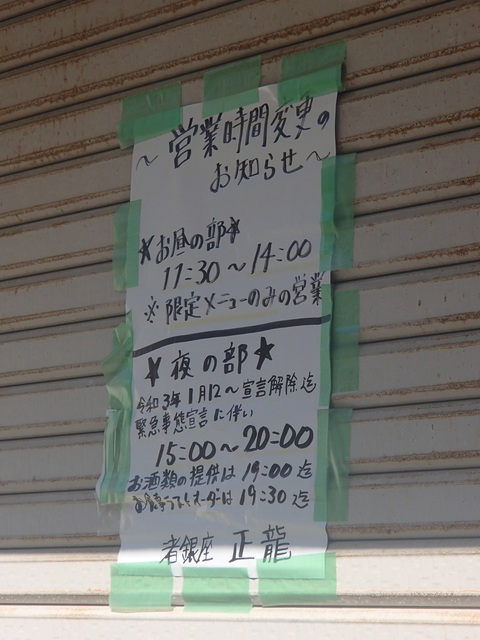 ～営業時間変更の
お知らせ～
★お昼の部★
11:30～14:00
※限定メニューのみの営業
★夜の部★
令和3年1月12～宣言解除迄
緊急事態宣言に伴い
15:00～20:00
お酒類の提供は19:00迄
お食事ラストオーダーは19:30迄
者銀座 正龍